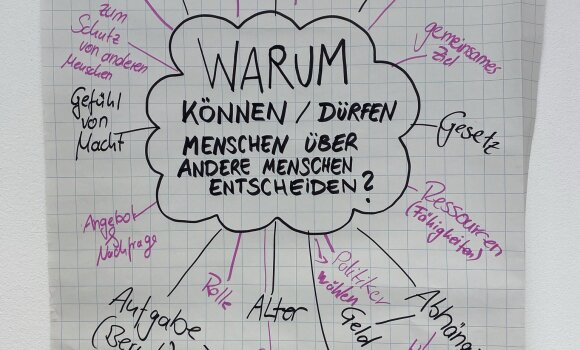 zum
Schutz
von anderen
Menschen
Gefühl
von
Macht
Angebot
Nachfrage
WARUM
KÖNNEN / DÜRFEN
MENSCHEN ÜBER
ANDERE MENSCHEN
ENTSCHEIDEN?
gemeinsames
Ziel
Gesetz
Ressourcen
(Fähigkeiten)
Aufgabe
Rolle
Alter
Politiker
wählen
Geld